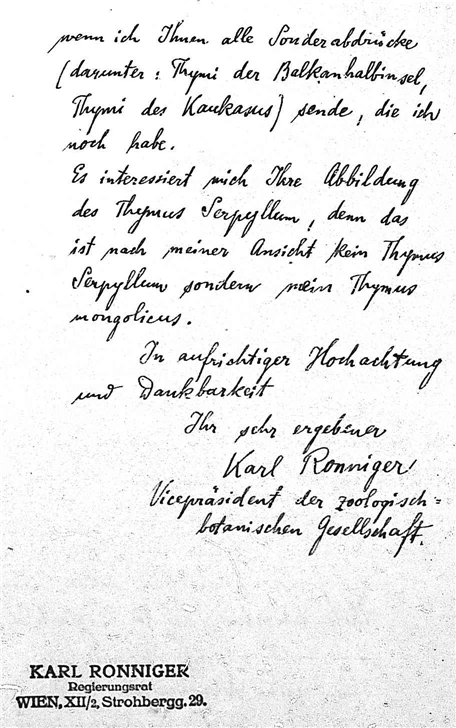 wenn ich Ihnen alle Sonderabdrücke
(darunter: Thymi der Balkanhalbinsel,
Thymi des Kaukasus) sende, die ich
noch habe.
Es interessiert mich Ihre Abbildung
des Thymus Serpyllum, denn das
ist nach meiner Ansicht kein Thymus
Serpyllum sondern mein Thymus
mongolicus.
In aufrichtiger Hochachtung
und Dankbarkeit
Ihr sehr ergebener
Karl Ronniger
Vicepräsident der zoologisch=
botanischen Gesellschaft.
KARL RONNIGER
Regierungsrat
WIEN, XII/2, Strohbergg. 29.